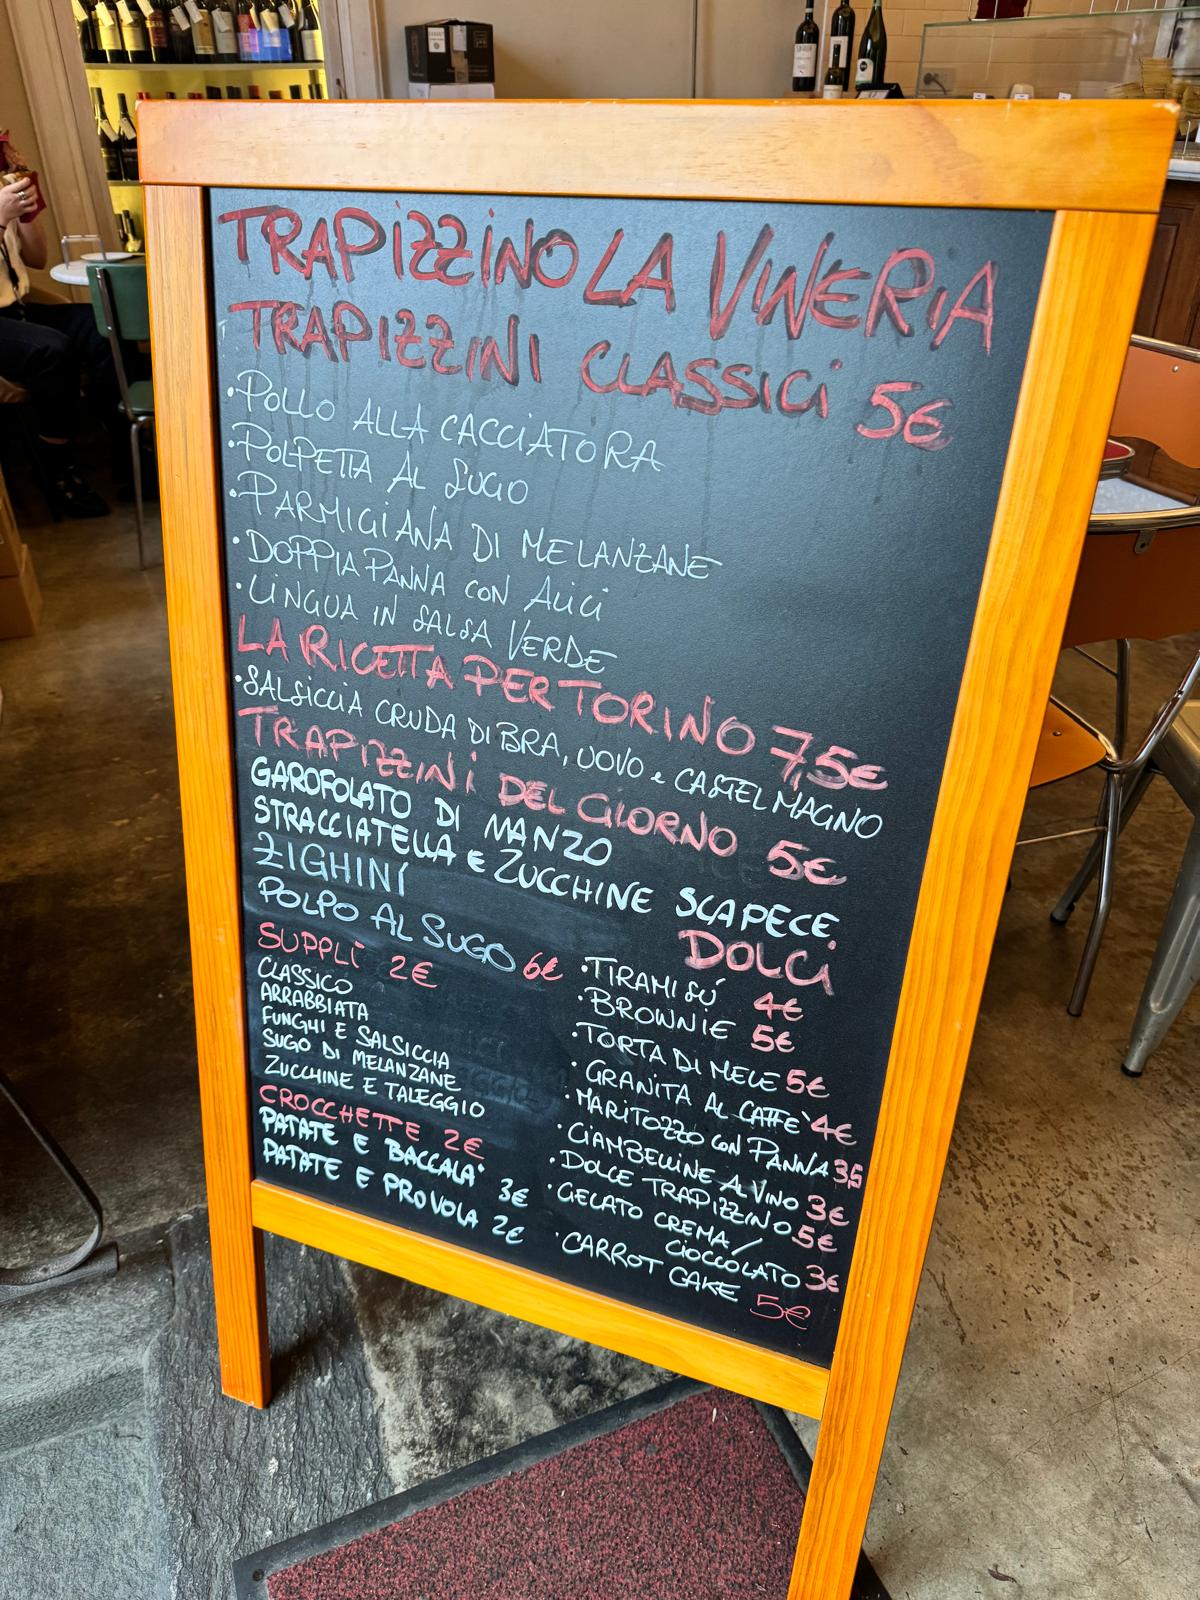 TRAPIZZINO LA VINERIA
TRAPIZZINI CLASSICI 5€
·POLLO ALLA CACCIATORA
·POLPETTA AL SUGO
·PARMIGIANA DI MELANZANE
·DOPPIA PANNA CON ALICI
·LINGUA IN SALSA VERDE
LA RICETTA PER TORINO 7,5€
·SALSICCIA CRUDA DI BRA, UOVO e CASTELMAGNO
TRAPIZZINI DEL GIORNO 5€
GAROFOLATO DI MANZO
STRACCIATELLA E ZUCCHINE SCAPECE
ZIGHINÌ
POLPO AL SUGO 6€
SUPPLÌ 2€
CLASSICO
ARRABBIATA
FUNGHI E SALSICCIA
SUGO DI MELANZANE
ZUCCHINE E TALEGGIO
CROCCHETTE 2€
PATATE E BACCALA' 3€
PATATE E PROVOLA 2€
DOLCI
·TIRAMISÚ 4€
·BROWNIE 5€
·TORTA DI MELE 5€
·GRANITA AL CAFFE' 4€
·MARITOZZO CON PANNA 3,5
·CIAMBELLINE AL VINO 3€
·DOLCE TRAPIZZINO 5€
·GELATO CREMA/
CIOCCOLATO 3€
·CARROT CAKE 5€